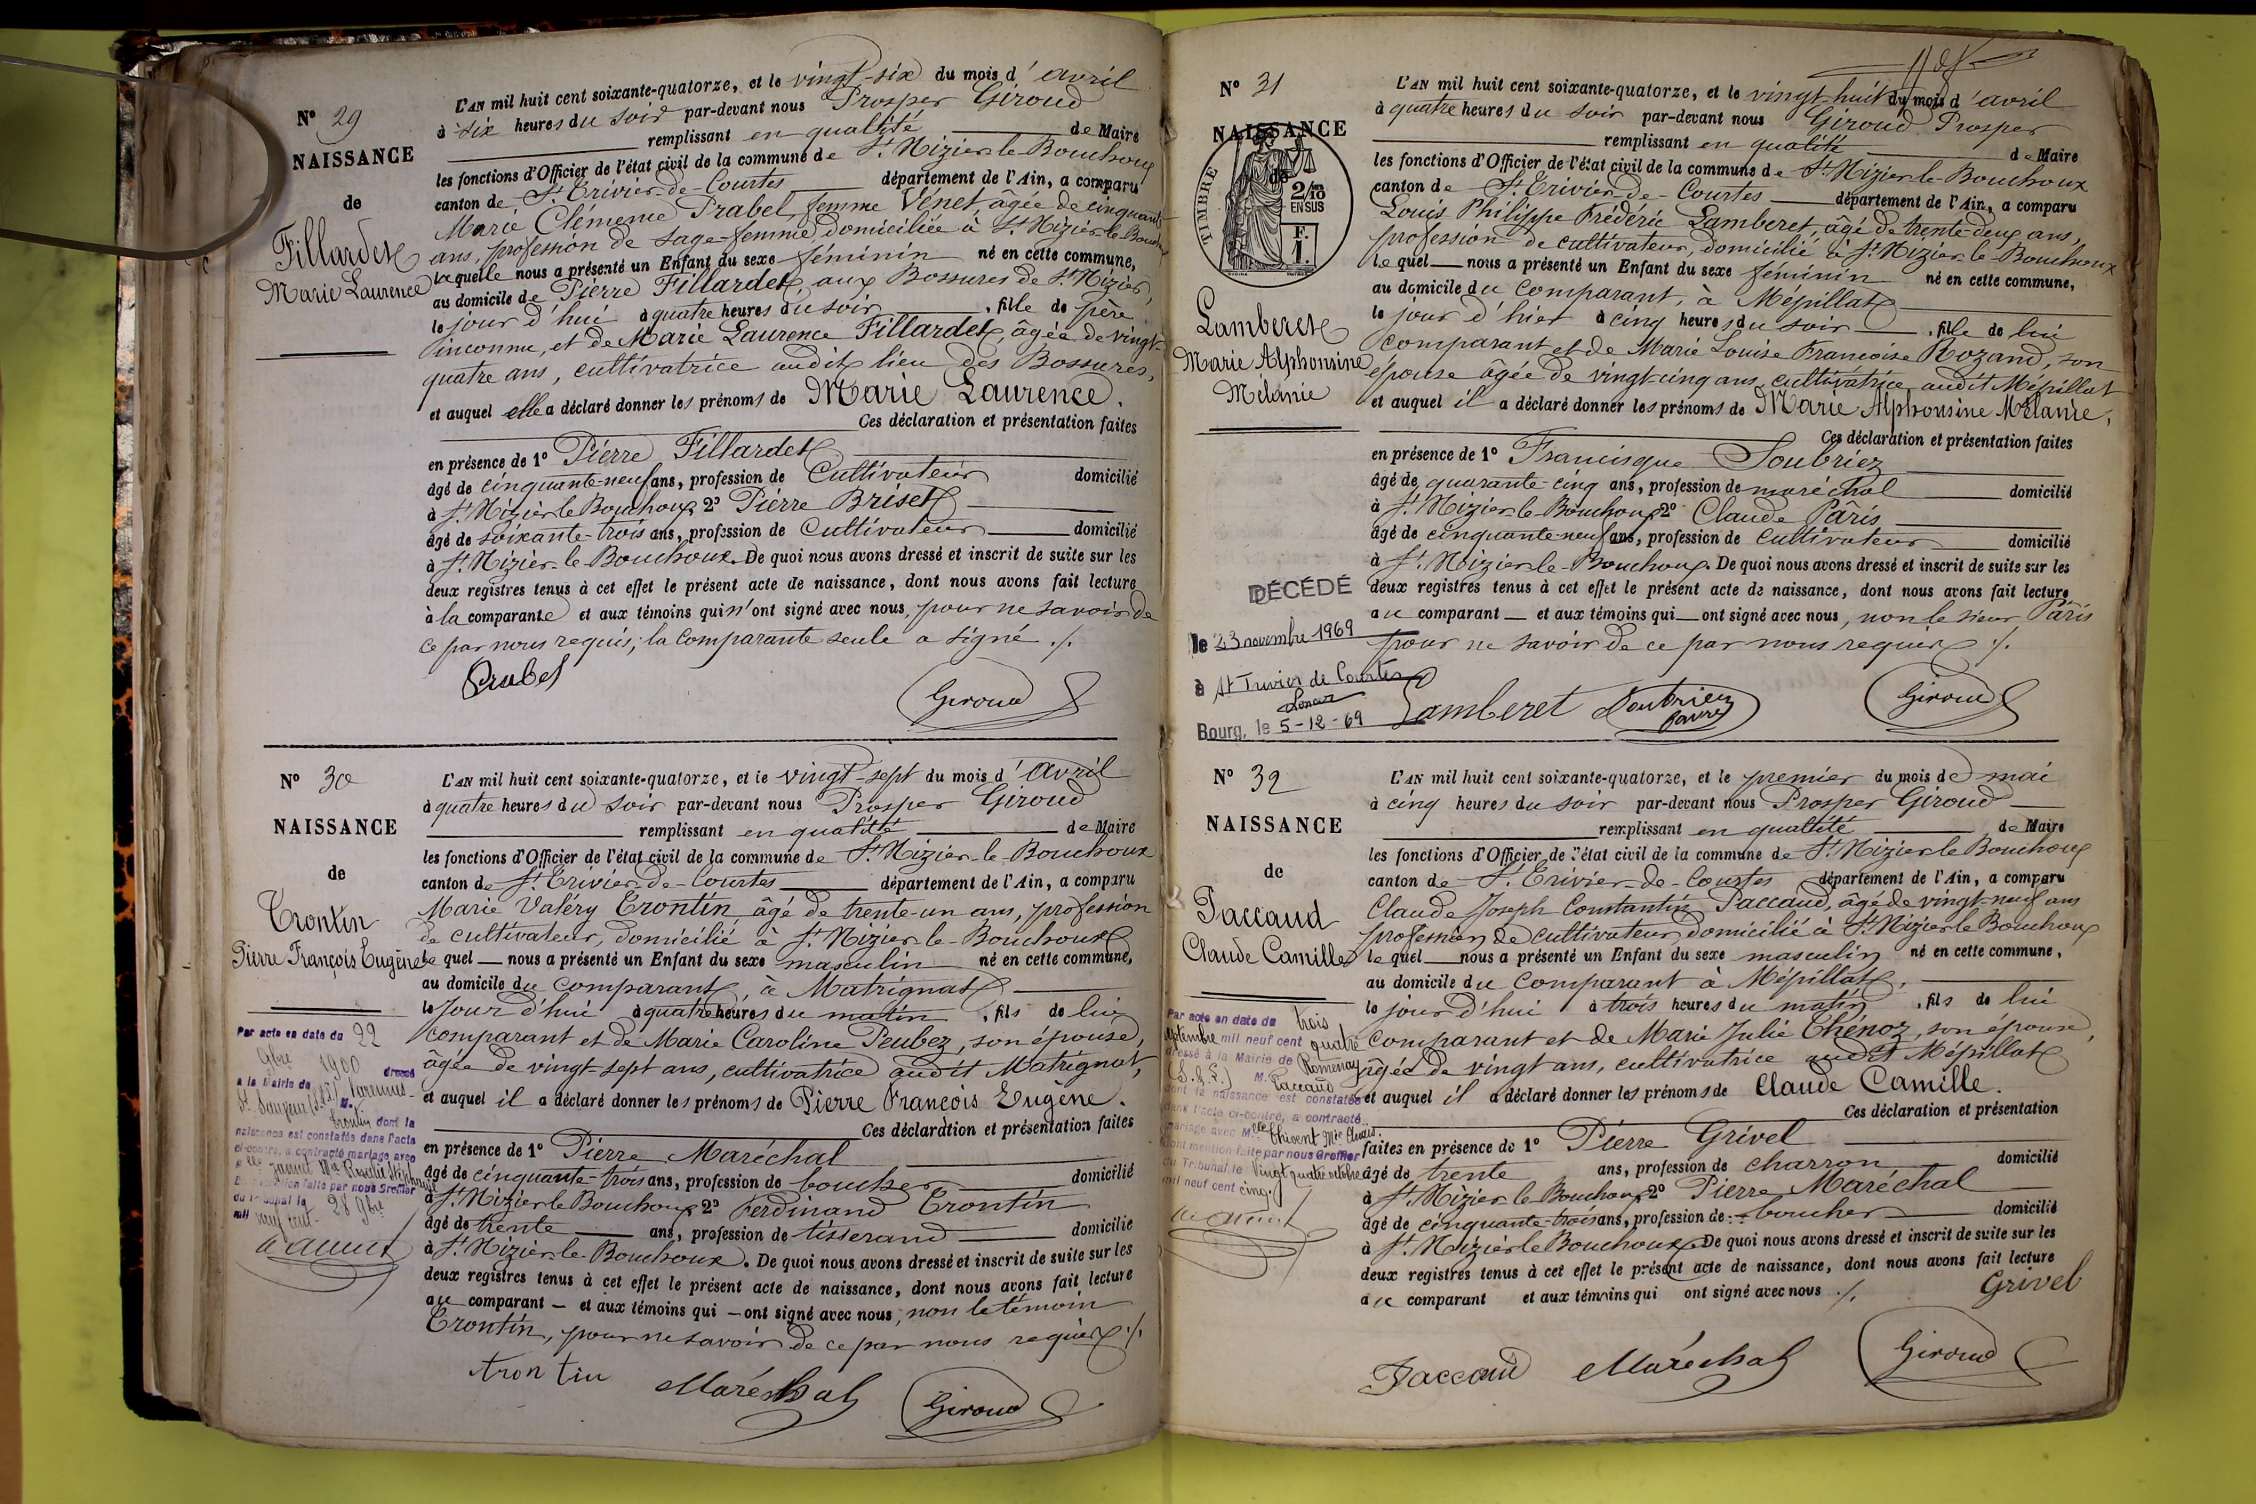 N° 29
NAISSANCE
de
Fillardet
Marie Laurence
L'AN mil huit cent soixante-quatorze, et le vingt-six du mois d'avril
à six heures du soir par-devant nous Prosper Giroud
remplissant en qualité de Maire
les fonctions d'Officier de l'état civil de la commune de St Nizier-le-Bouchoux
canton de St Trivier-de-Courtes département de l'Ain, a comparu
Marie Clémence Prabel, femme Vénet âgée de cinquante
ans, profession de sage-femme domiciliée à St Nizier-le-Bouchoux
laquelle nous a présenté un Enfant du sexe féminin né en cette commune,
au domicile de Pierre Fillardet, aux Bossures de St Nizier,
le jour d'hui à quatre heures du soir, fille de père
inconnu, et de Marie Laurence Fillardet, âgée de vingt-
quatre ans, cultivatrice audit lieu des Bossures,
et auquel elle a déclaré donner les prénoms de Marie Laurence.
Ces déclaration et présentation faites
en présence de 1° Pierre Fillardet
âgé de cinquante-neuf ans, profession de Cultivateur domicilié
à St Nizier le Bouchoux 2° Pierre Briset
âgé de soixante-trois ans, profession de Cultivateur domicilié
à St Nizier-le-Bouchoux. De quoi nous avons dressé et inscrit de suite sur les
deux registres tenus à cet effet le présent acte de naissance, dont nous avons fait lecture
à la comparante et aux témoins qui n'ont signé avec nous, pour ne savoir de
ce par nous requis; la comparante seule a signé ./.
Prabel
Giroud
N° 30
NAISSANCE
de
Trontin
Pierre François Eugène
L'AN mil huit cent soixante-quatorze, et le vingt-sept du mois d'avril
à quatre heures du soir par-devant nous Prosper Giroud
remplissant en qualité de Maire
les fonctions d'Officier de l'état civil de la commune de St Nizier-le-Bouchoux
canton de St Trivier-de-Courtes département de l'Ain, a comparu
Marie Valéry Trontin, âgé de trente-un ans, profession
de cultivateur, domicilié à St Nizier-le-Bouchoux
le quel nous a présenté un Enfant du sexe masculin né en cette commune,
au domicile du comparant, à Matrignat
le jour d'hui à quatre heures du matin, fils de lui
comparant et de Marie Caroline Peubez, son épouse,
âgée de vingt-sept ans, cultivatrice audit Matrignat,
et auquel il a déclaré donner les prénoms de Pierre François Eugène.
Ces déclaration et présentation faites
en présence de 1° Pierre Maréchal
âgé de cinquante-trois ans, profession de boucher domicilié
à St Nizier le Bouchoux 2° Ferdinand Trontin
âgé de trente ans, profession de tisserand domicilié
à St Nizier-le-Bouchoux. De quoi nous avons dressé et inscrit de suite sur les
deux registres tenus à cet effet le présent acte de naissance, dont nous avons fait lecture
au comparant et aux témoins qui ont signé avec nous, non le témoin
Trontin, pour ne savoir de ce par nous requis ./.
Par acte en date du 22
9bre 1900 dressé
à la Mairie de Varennes-
St Sauveur (S&L) M.
Trontin dont la
naissance est constatée dans l'acte
ci-contre, a contracté mariage avec
Mlle Jannet Mie Rosalie Stéphanie
mention faite par nous Greffier
du Tribunal le 28 9bre
mil neuf cent
trontin
Maréchal
Giroud
N° 31
NAISSANCE
de
TIMBRE
2/10
EN SUS
F.
1.
Lamberet
Marie Alphonsine
Mélanie
L'AN mil huit cent soixante-quatorze, et le vingt-huit du mois d'avril
à quatre heures du soir par-devant nous Giroud Prosper
remplissant en qualité de Maire
les fonctions d'Officier de l'état civil de la commune de St Nizier-le-Bouchoux
canton de St Trivier-de-Courtes département de l'Ain, a comparu
Louis Philippe Fréderic Lamberet, âgé de trente-deux ans,
profession de cultivateur, domicilié à St Nizier-le-Bouchoux
le quel nous a présenté un Enfant du sexe féminin né en cette commune,
au domicile du comparant, à Mépillat
le jour d'hier à cinq heures du soir, fille de lui
comparant et de Marie Louise Francoise Rozand, son
épouse âgée de vingt-cinq ans, cultivatrice audit Mépillat
et auquel il a déclaré donner les prénoms de Marie Alphonsine Mélanie.
Ces déclaration et présentation faites
en présence de 1° Francisque Soubriez
âgé de quarante-cinq ans, profession de maréchal domicilié
à St Nizier-le-Bouchoux 2° Claude Pâris
âgé de cinquante-neuf ans, profession de Cultivateur domicilié
à St Nizier-le-Bouchoux. De quoi nous avons dressé et inscrit de suite sur les
deux registres tenus à cet effet le présent acte de naissance, dont nous avons fait lecture
au comparant et aux témoins qui ont signé avec nous, non le sieur Pâris
pour ne savoir de ce par nous requis ./.
DÉCÉDÉ
le 23 novembre 1969
à St Trivier de Courtes
Bourg, le 5-12-69
Lamberet
Soubriez
Giroud
N° 32
NAISSANCE
de
Paccaud
Claude Camille
L'AN mil huit cent soixante-quatorze, et le premier du mois de mai
à cinq heures du soir par-devant nous Prosper Giroud
remplissant en qualité de Maire
les fonctions d'Officier de l'état civil de la commune de St Nizier le Bouchoux
canton de St Trivier-de-Courtes département de l'Ain, a comparu
Claude Joseph Constantin Paccaud, âgé de vingt-neuf ans
profession de cultivateur, domicilié à St Nizier le Bouchoux
le quel nous a présenté un Enfant du sexe masculin né en cette commune,
au domicile du comparant à Mépillat,
le jour d'hui à trois heures du matin, fils de lui
comparant et de Marie Julie Thénoz, son épouse,
âgée de vingt ans, cultivatrice audit Mépillat
et auquel il a déclaré donner les prénoms de Claude Camille.
Ces déclaration et présentation
faites en présence de 1° Pierre Grivel
âgé de trente ans, profession de charron domicilié
à St Nizier le Bouchoux 2° Pierre Maréchal
âgé de cinquante-trois ans, profession de boucher domicilié
à St Nizier le Bouchoux. De quoi nous avons dressé et inscrit de suite sur les
deux registres tenus à cet effet le présent acte de naissance, dont nous avons fait lecture
au comparant et aux témoins qui ont signé avec nous ./.
Par acte en date du trois
septembre mil neuf cent quatre
dressé à la Mairie de Romenay
(S.&L.) M. Paccaud
dont la naissance est constatée
dans l'acte ci-contre, a contracté
mariage avec Mlle Thivent Mie
dont mention faite par nous Greffier
du Tribunal le vingt quatre octobre
mil neuf cent cinq.
Grivel
Paccaud
Maréchal
Giroud